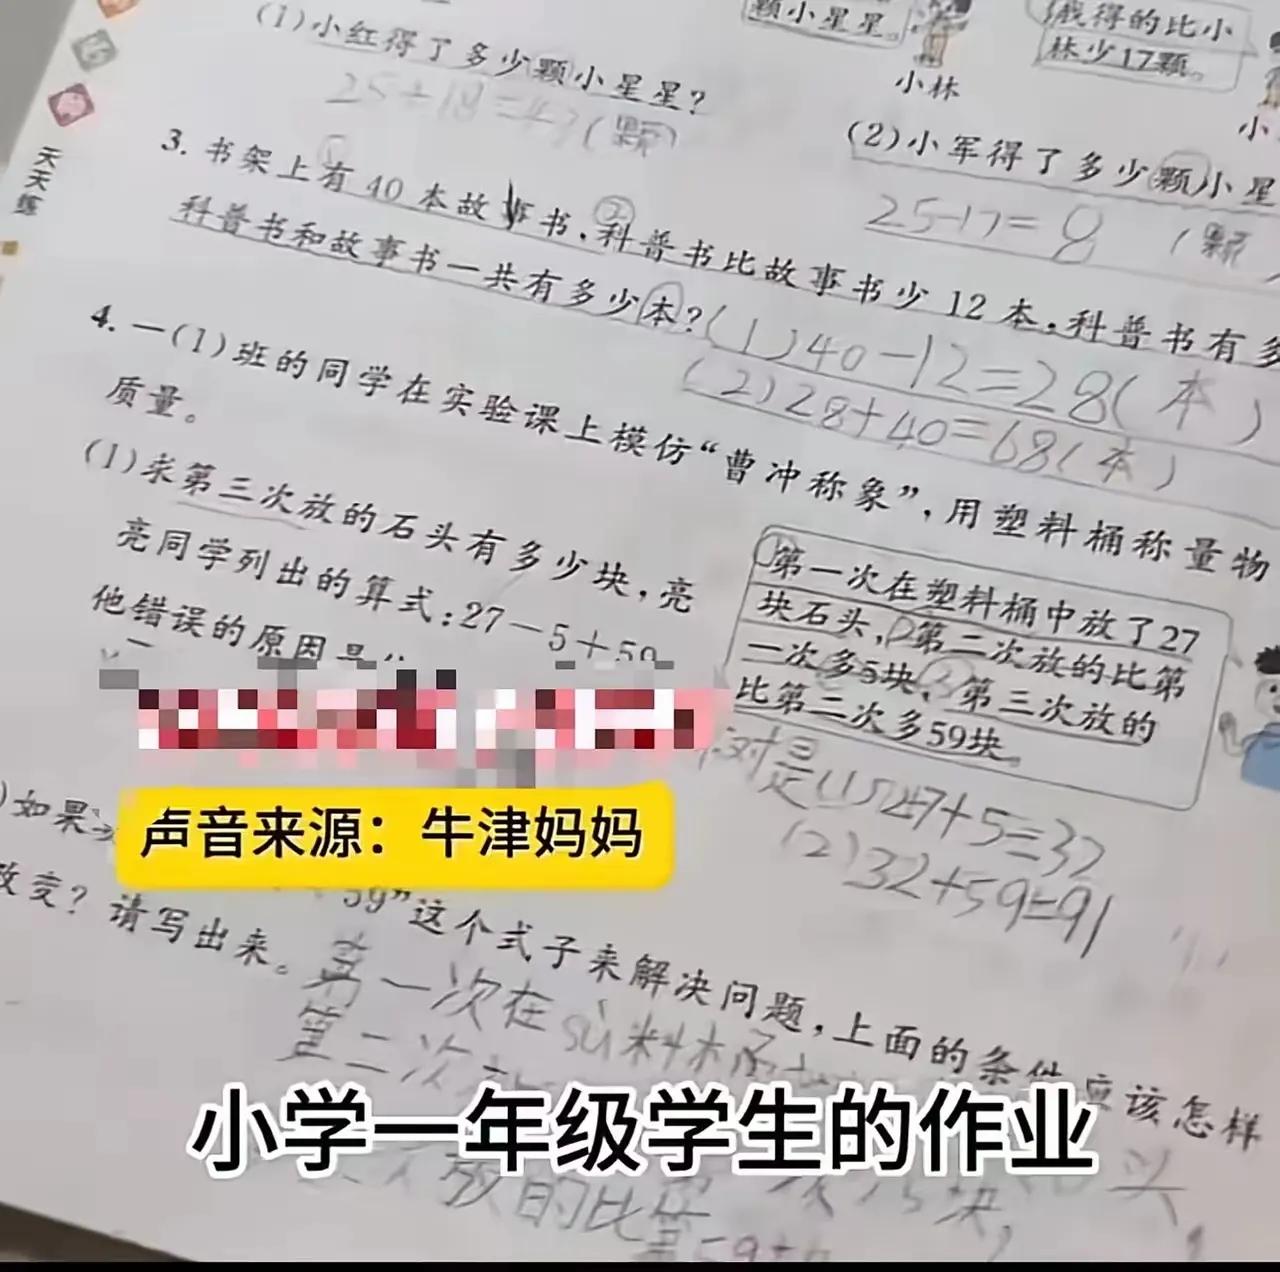 颗小星星。
我得的比小
林少17颗。
(1)小红得了多少颗小星星?
小林
小
25+18=43(颗)
(2)小军得了多少颗小星
25-17=8(颗
天天练
3. 书架上有 40 本故事书,科普书比故事书少 12 本,科普书有多
科普书和故事书一共有多少本?
(1)40-12=28(本)
(2)28+40=68(本)
4. 一(1)班的同学在实验课上模仿“曹冲称象”,用塑料桶称量物
质量。
(1)求第三次放的石头有多少块,亮
亮同学列出的算式:27-5+59
他错误的原因是
第一次在塑料桶中放了27
块石头,第二次放的比第
一次多5块,第三次放的
比第二次多59块。
对是(1)27+5=32
(2)32+59=91
声音来源:牛津妈妈
)如果
59”这个式子来解决问题,上面的条件应该怎样
改变?请写出来。
第一次在sù料
第二次
小学一年级学生的作业
头,
放的比第